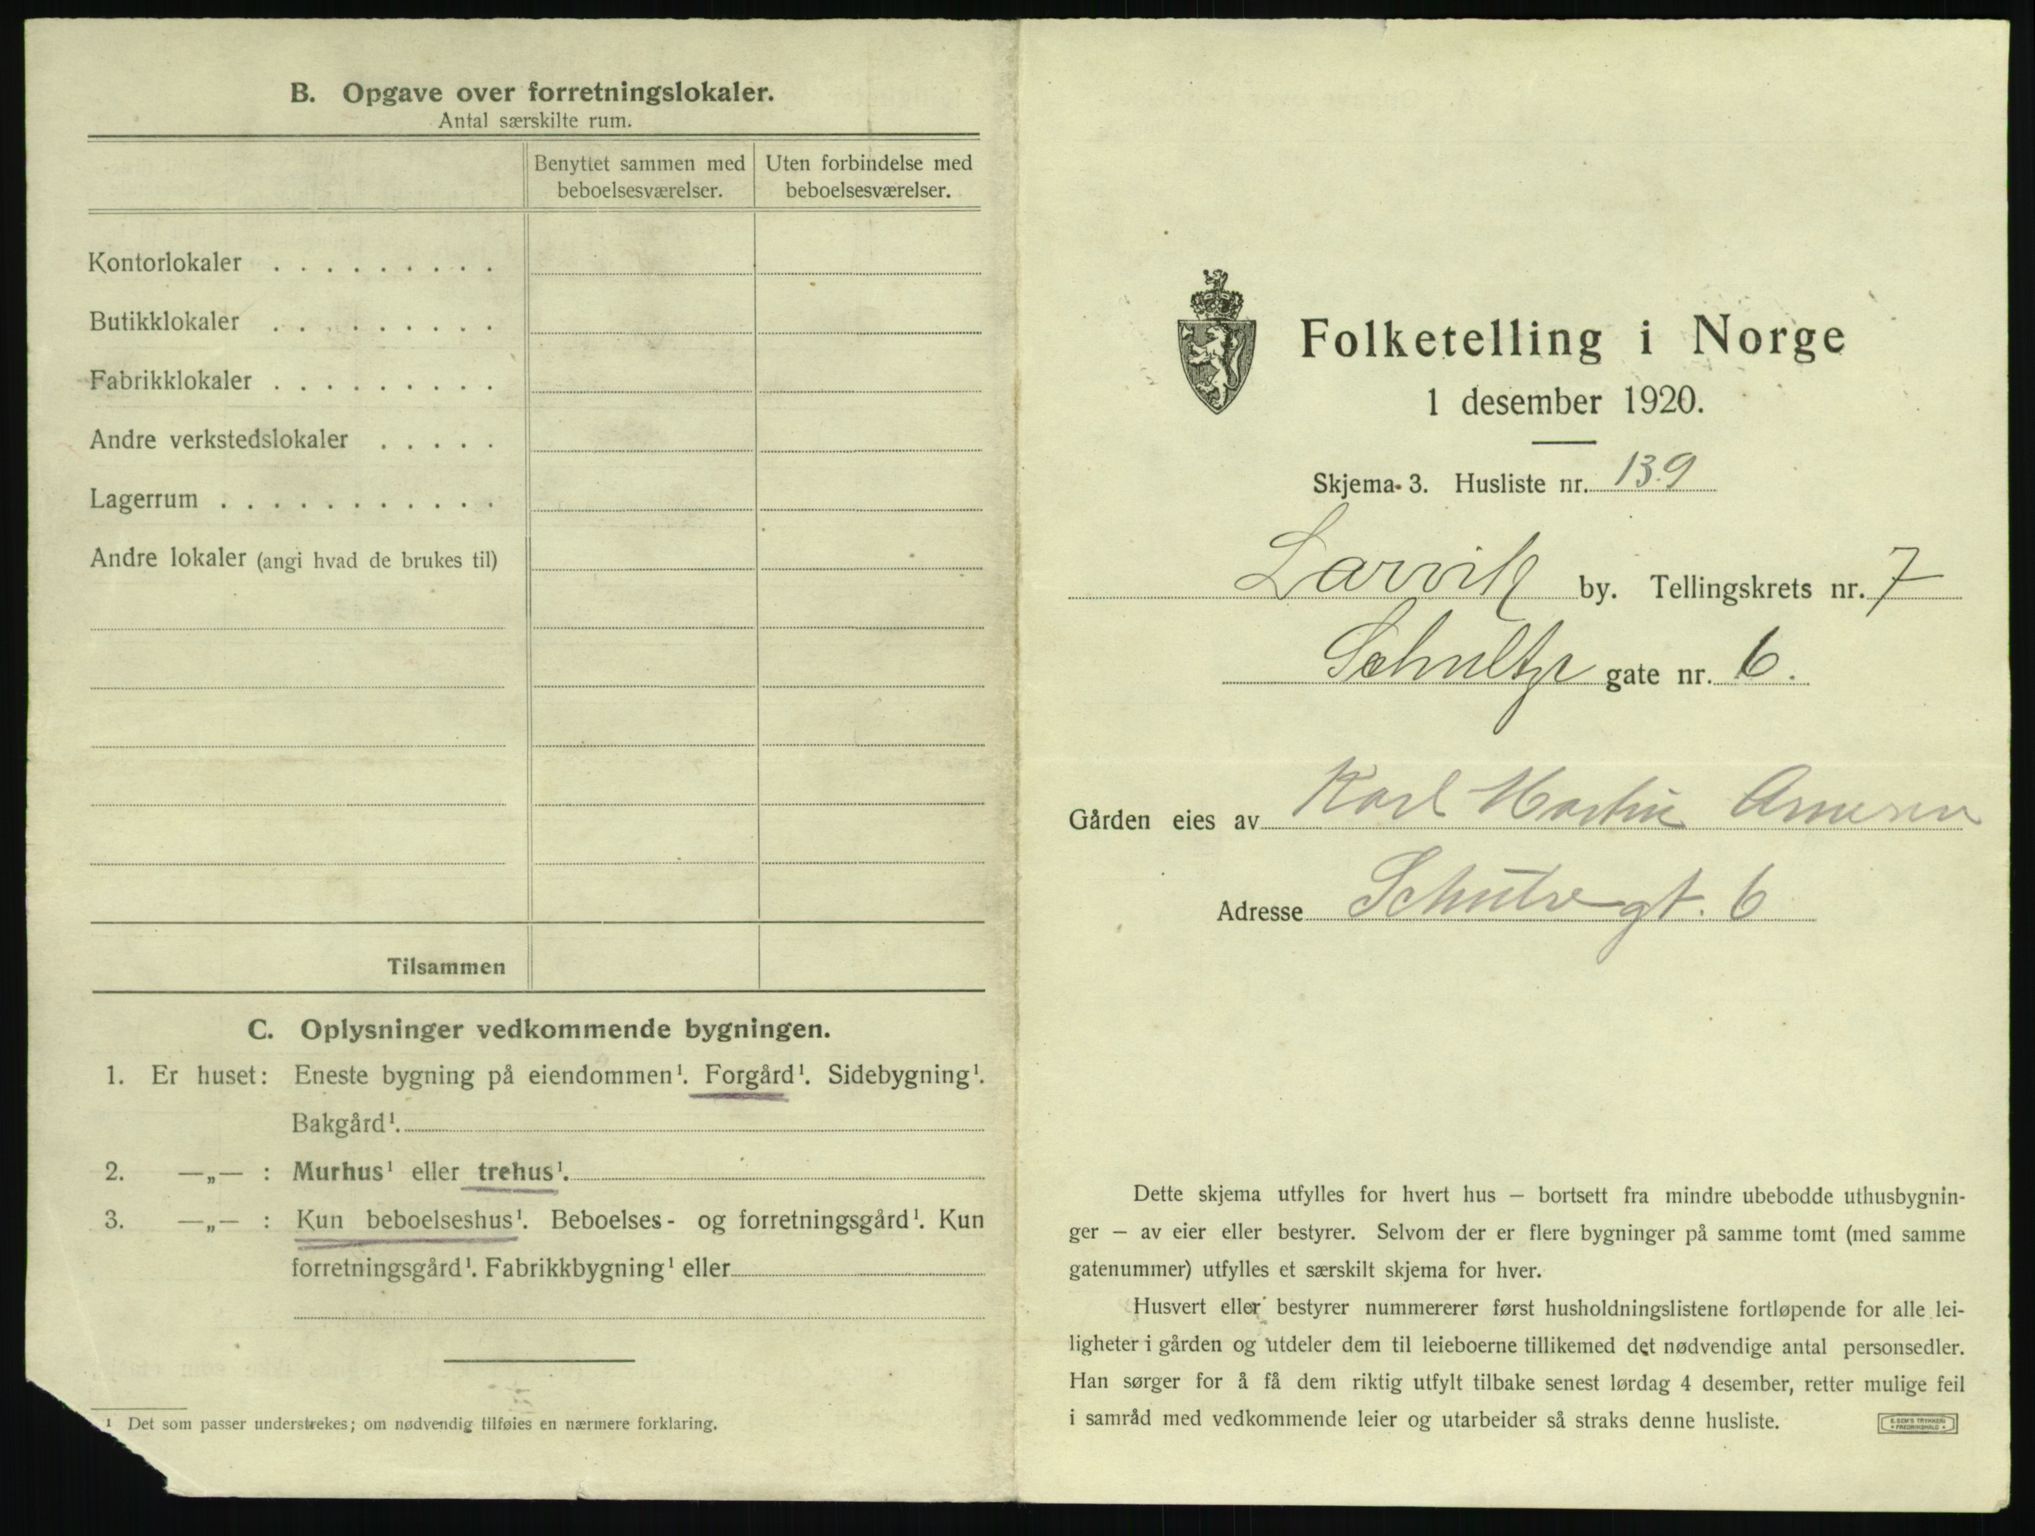 B. Opgave over forretningslokaler.
Antal særskilte rum.
Benyttet sammen med beboelsesværelser.
Uten forbindelse med beboelsesværelser.
Kontorlokaler . . . . . . . . .
Butikklokaler . . . . . . . . .
Fabrikklokaler . . . . . . . . .
Andre verkstedslokaler . . . . .
Lagerrum . . . . . . . . . . .
Andre lokaler (angi hvad de brukes til)
Tilsammen
C. Oplysninger vedkommende bygningen.
1. Er huset: Eneste bygning på eiendommen¹. Forgård¹. Sidebygning¹.
Bakgård¹.
2. —„— : Murhus¹ eller trehus¹.
3. —„— : Kun beboelseshus¹. Beboelses- og forretningsgård¹. Kun
forretningsgård¹. Fabrikkbygning¹ eller
¹ Det som passer understrekes; om nødvendig tilføies en nærmere forklaring.
Folketelling i Norge
1 desember 1920.
Skjema 3. Husliste nr. 139
Larvik by. Tellingskrets nr. 7
Schultz gate nr. 6.
Gården eies av Karl Martin Arnesen
Adresse Schulzegt. 6
Dette skjema utfylles for hvert hus – bortsett fra mindre ubebodde uthusbygnin-
ger – av eier eller bestyrer. Selvom der er flere bygninger på samme tomt (med samme
gatenummer) utfylles et særskilt skjema for hver.
Husvert eller bestyrer nummererer først husholdningslistene fortløpende for alle lei-
ligheter i gården og utdeler dem til leieboerne tillikemed det nødvendige antal personsedler.
Han sørger for å få dem riktig utfylt tilbake senest lørdag 4 desember, retter mulige feil
i samråd med vedkommende leier og utarbeider så straks denne husliste.
E. SEM'S TRYKKERI
FREDRIKSHALD